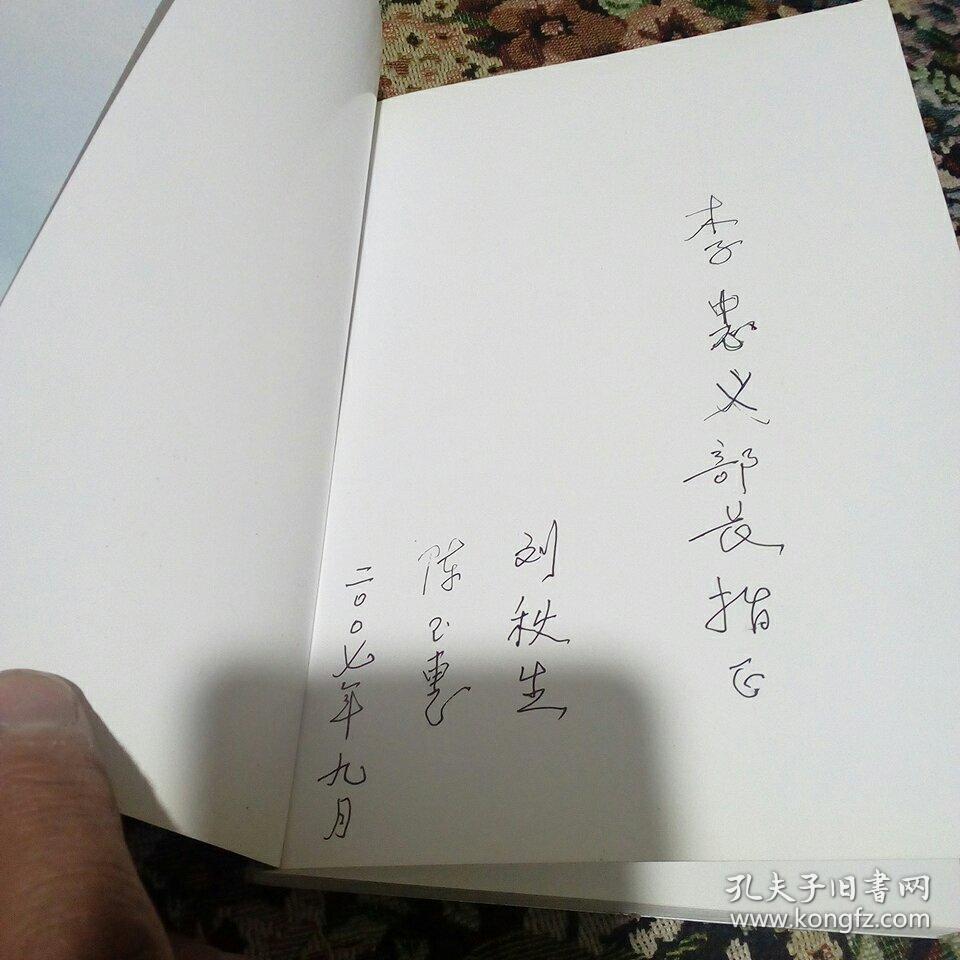 李忠义部长指正
刘秩生
陈玉惠
二00七年九月
孔夫子旧书网
www.kongfz.com